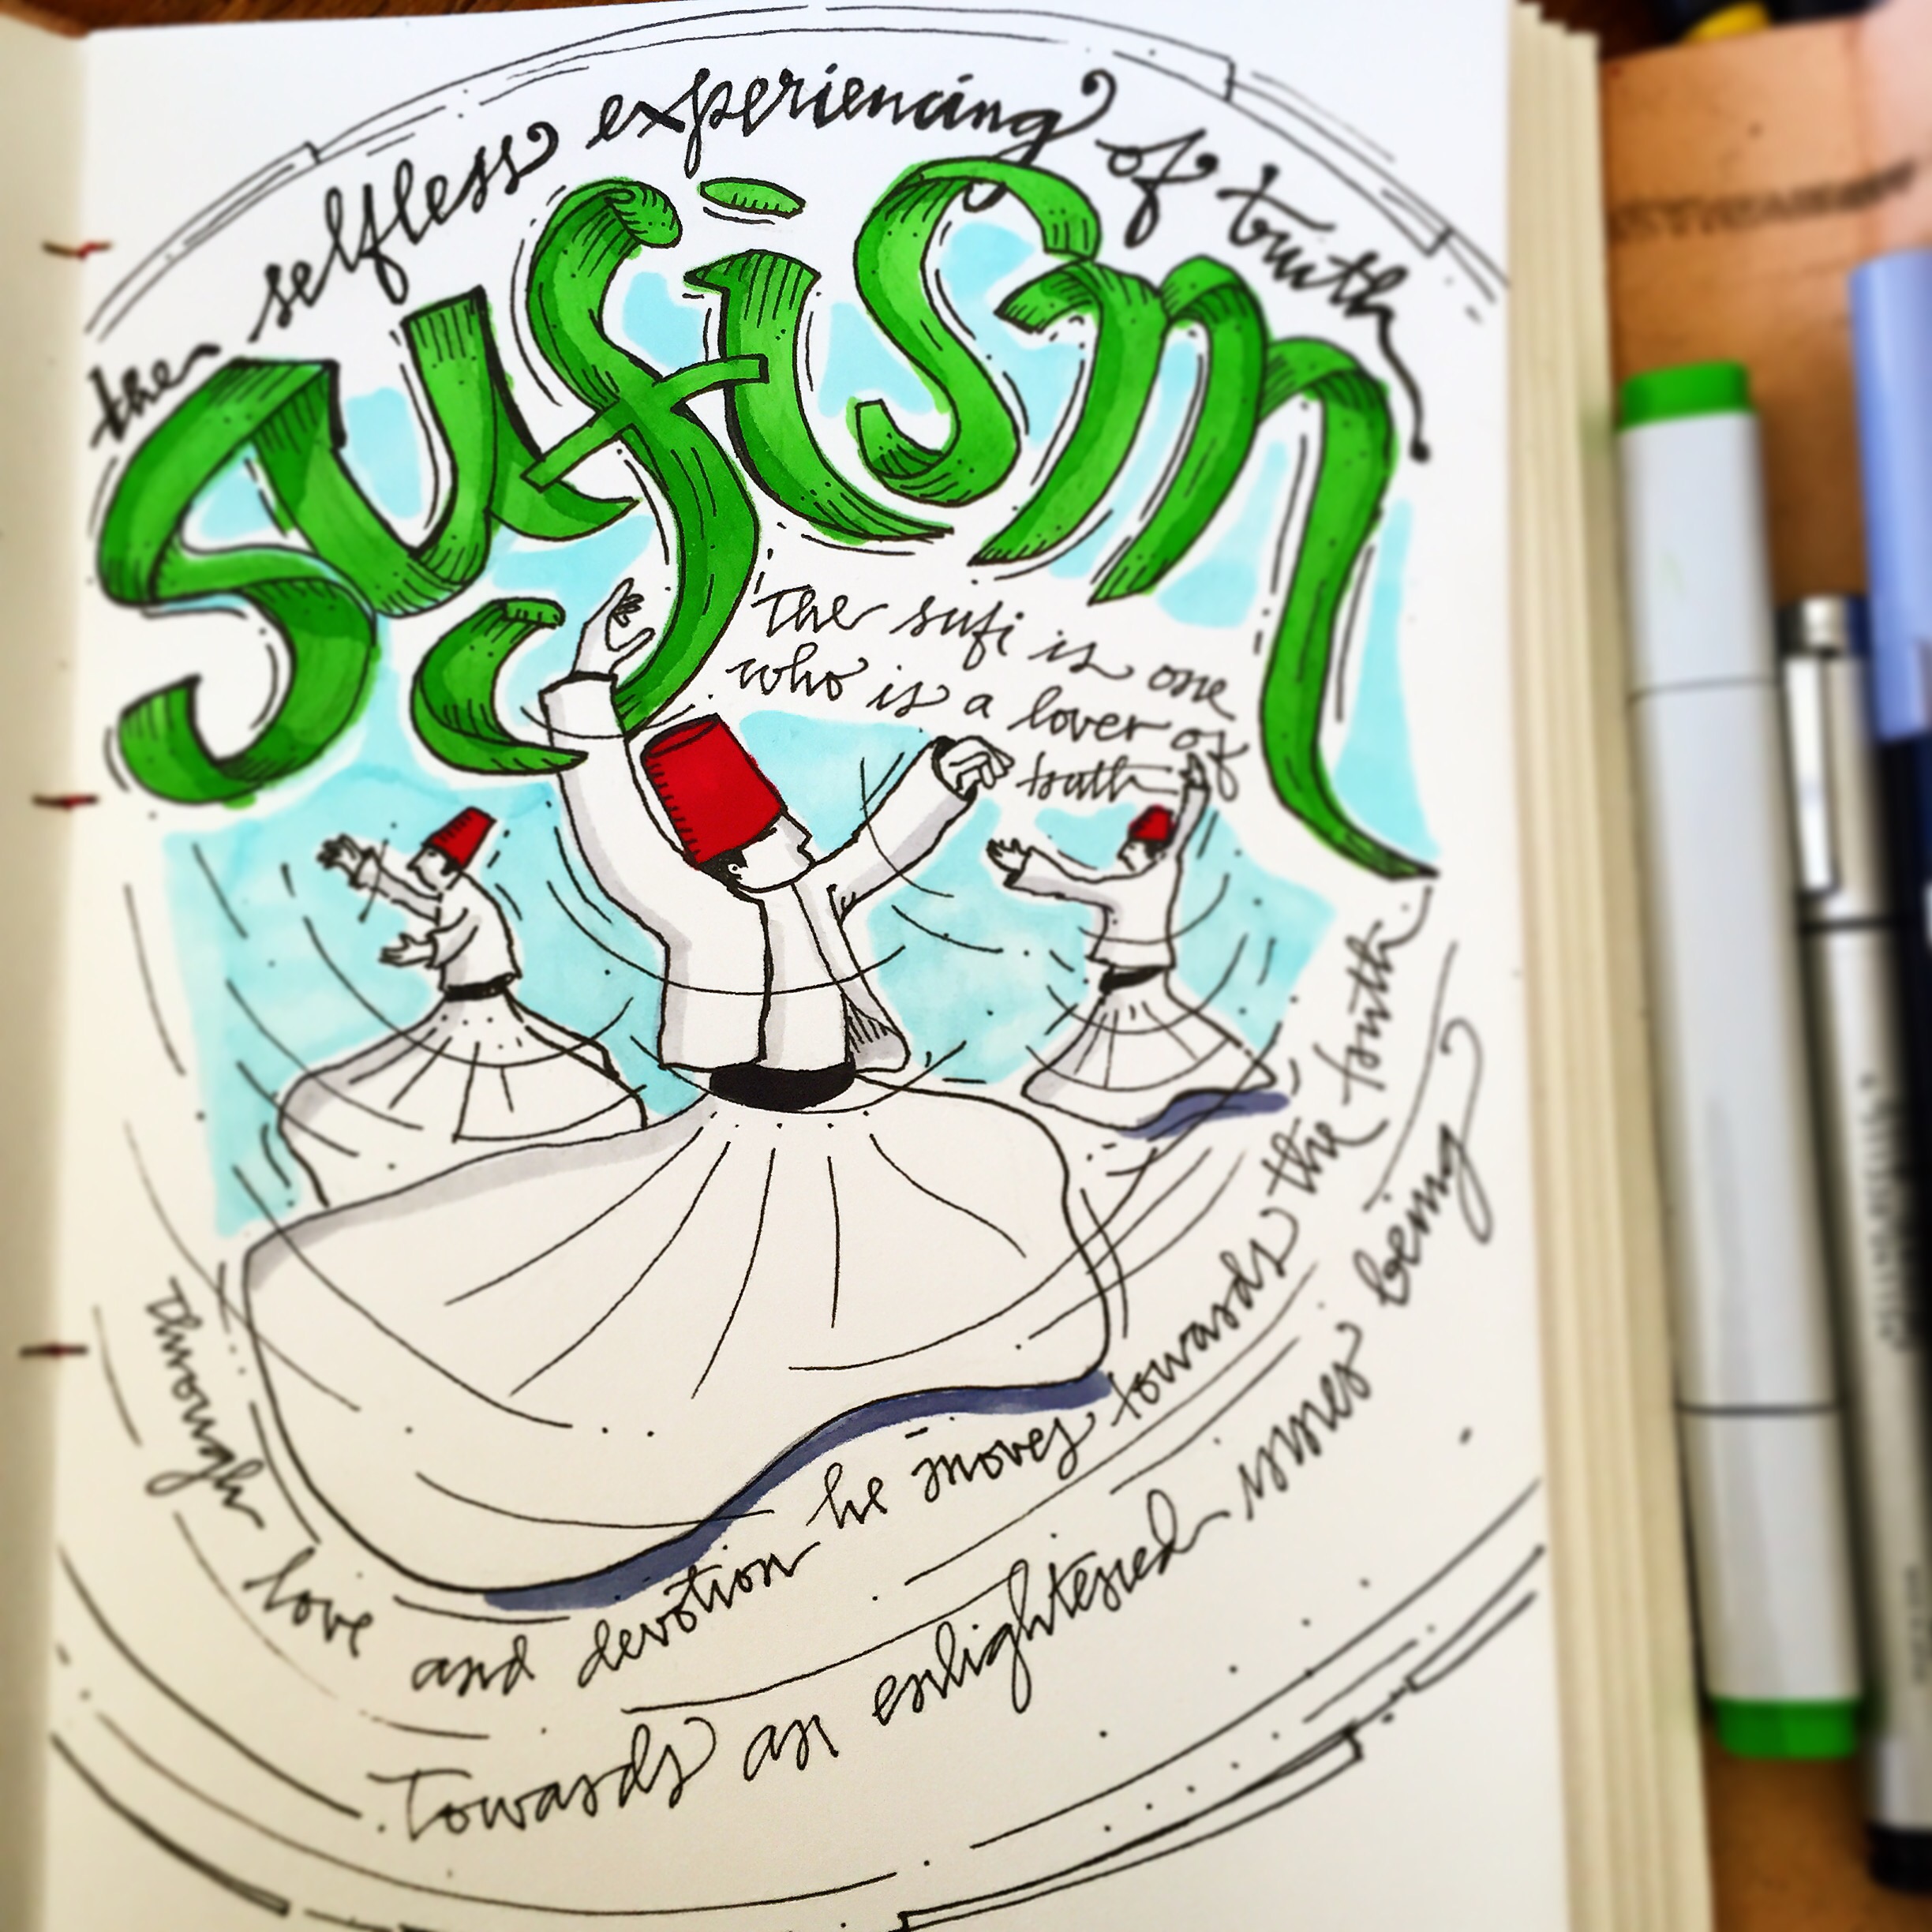 the selfless experiencing of truth
Sufism
The sufi is one
who is a lover of
truth
through love and devotion he moves towards the truth
Towards an enlightened inner being